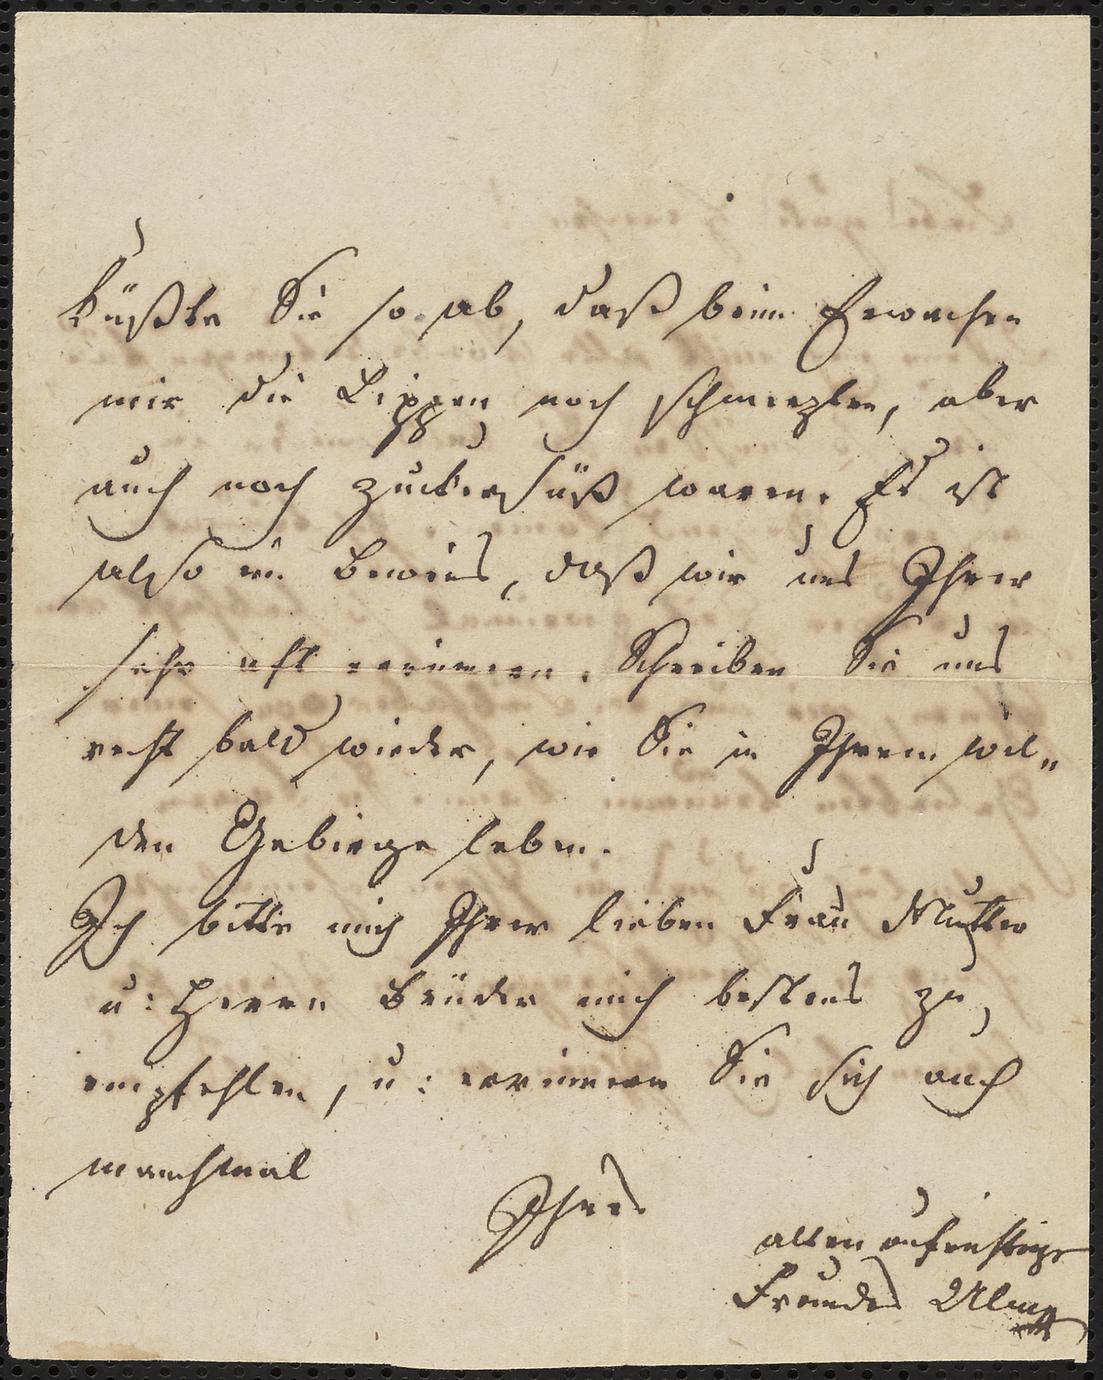 küßte Sie so ab, daß beim Erwachen
mir die Lippen noch schmerzten, aber
auch noch zuckersüß waren. Es ist
also ein Beweis, daß wir uns Ihrer
sehr oft erinnern. Schreiben Sie uns
recht bald wieder, wie Sie in Ihrem wil„
den Gebirge leben.
Ich bitte mich Ihrer lieben Frau Mutter
u: Herrn Bruder mich bestens zu
empfehlen, u: erinnern Sie sich auch
manchmal
Ihres
alten aufrichtige
Freundes